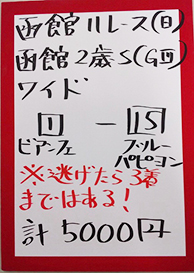 函館11レース(日)
函館2歳S(GⅢ)
ワイド
1 - 15
ビアンフェ ブルーパピヨン
※逃げたら3着
まではある!
計5000円